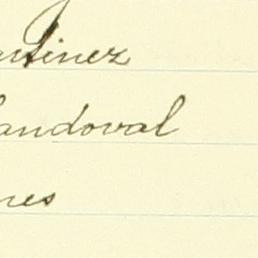 artinez
andoval
nes